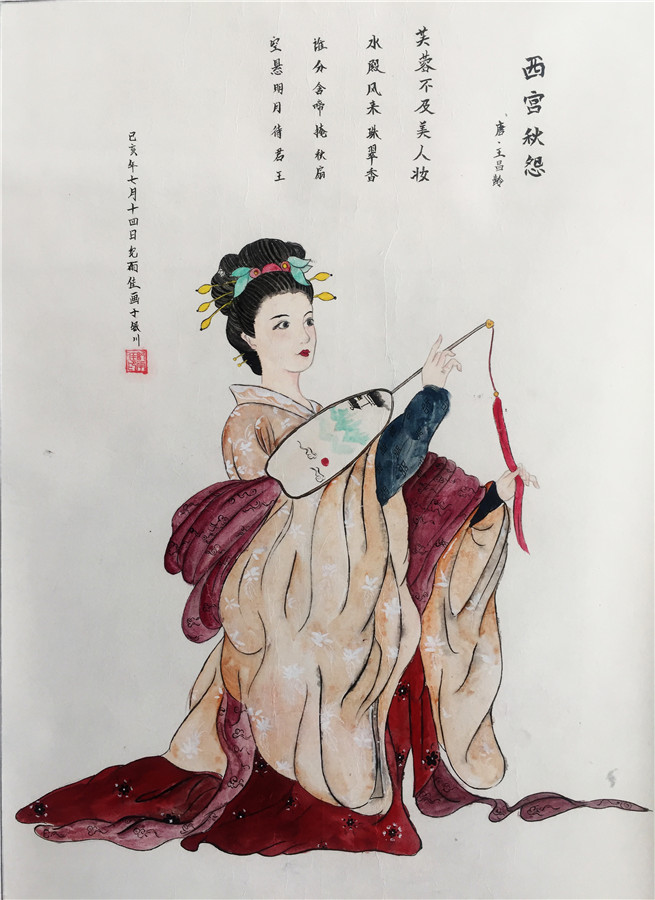 西宫秋怨
唐·王昌龄
芙蓉不及美人妆
水殿风来珠翠香
谁分含啼掩秋扇
空悬明月待君王
己亥年七月十四日雨佳画于银川